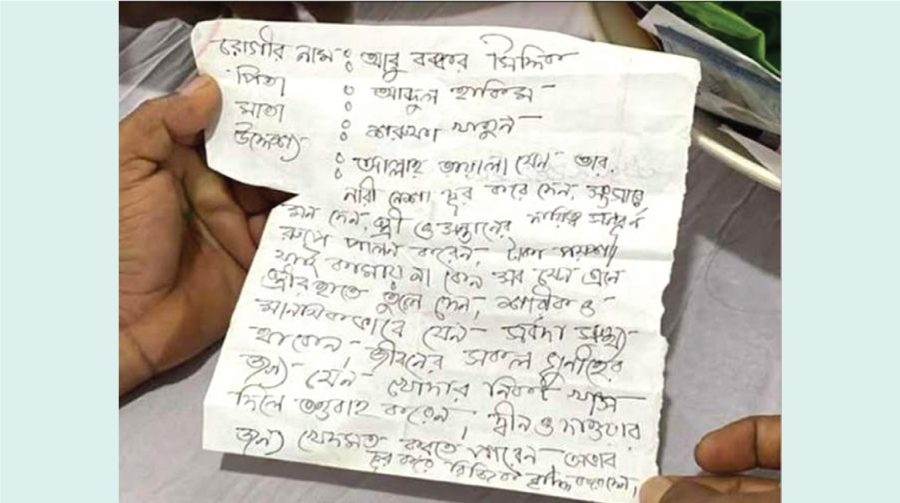 রোগীর নাম : আবু বক্কার সিদ্দিক
পিতা : আব্দুল হাকিম
মাতা : খাতুন
উদ্দেশ্য : আল্লাহ তায়ালা যেন তার
নারী নেশা দূর করে দেন, সংসারে
মন দেন, স্ত্রী ও সন্তানের দায়িত্ব সম্পূর্ণ
রুপে পালন করেন, টাকা পয়শা
যাই কামায় না কেন সব যেন এনে
স্ত্রীর হাতে তুলে দেন, শারিরিক ও
মানষিকভাবে যেন সর্বদা সুস্থ্য
থাকেন, জীবনের সকল গুনাহের
জন্য যেন খোদার নিকট খাস
দিলে তওবাহ করেন, দ্বীন ও দাওয়ার
জন্য খেদমত করতে পারেন অভাব
দূর করে রিজিক বৃদ্ধি করে দেন,